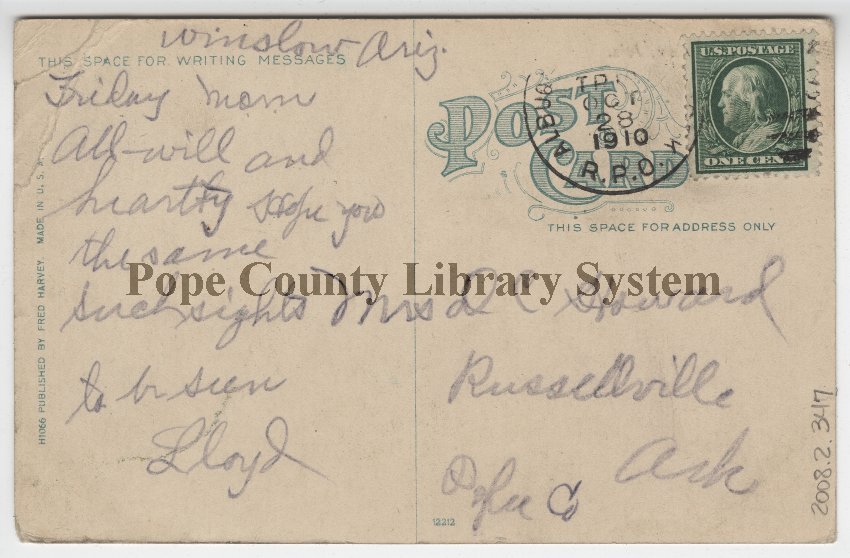 Winslow Ariz.
THIS SPACE FOR WRITING MESSAGES
Friday morn
All-will and
heartty hope you
the same
such sights
to be seen
Lloyd
H1066 PUBLISHED BY FRED HARVEY. MADE IN U.S.A.
POST CARD
ALBUQ
TRI
OCT
28
1910
R.P.O.
U.S. POSTAGE
ONE CENT
THIS SPACE FOR ADDRESS ONLY
Pope County Library System
Mrs D C Howard
Russellville
Ark
Pope Co
12212
2008.2.347